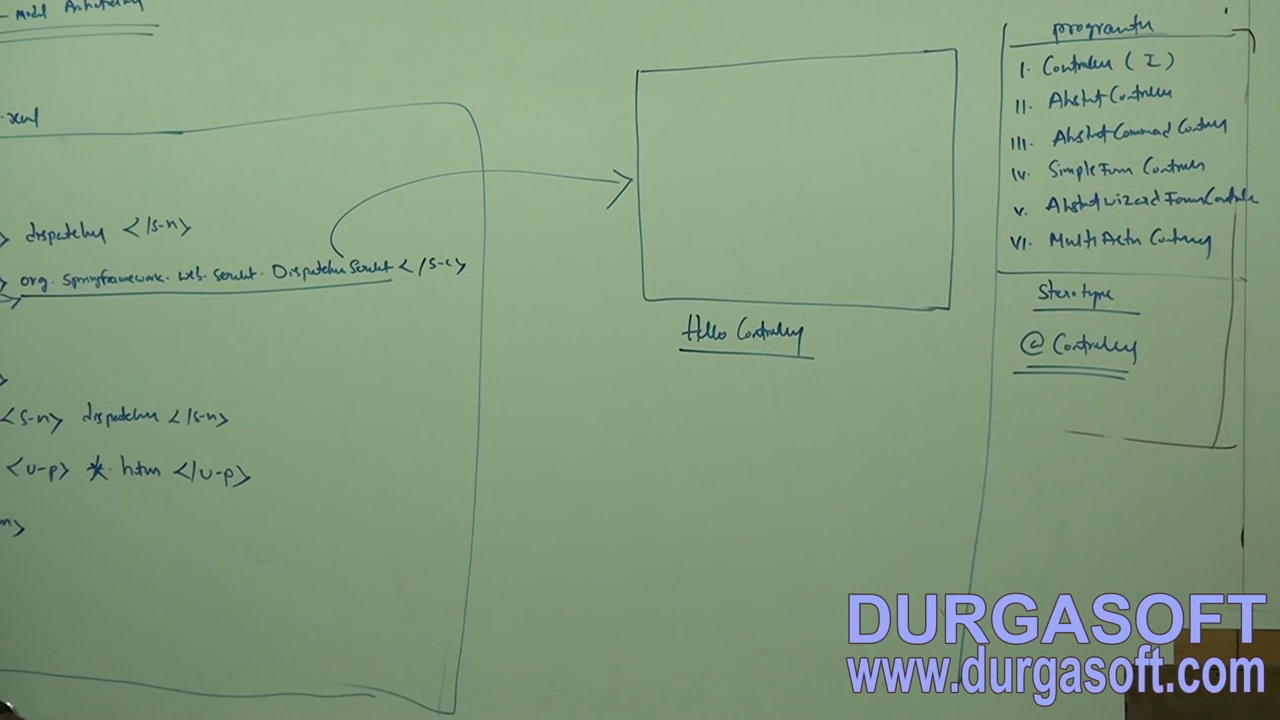 - Model Annotating
.xml
> dispatcher </s-n>
> org.springframework.web.servlet.DispatcherServlet </s-c>
>
<s-n> dispatcher </s-n>
<u-p> *.htm </u-p>
m>
Hello Controller
programtic
I. Controller (I)
II. Abstract Controller
III. Abstract Command Controller
IV. Simple Form Controller
V. Abstract Wizard Form Controller
VI. Multi Action Controller
Sterotype
@ Controller
DURGASOFT
www.durgasoft.com